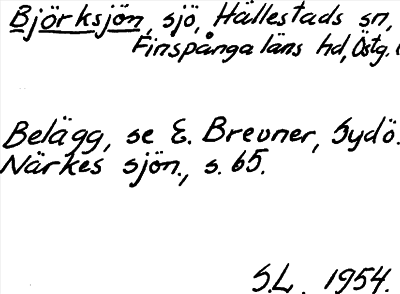 Björksjön, sjö, Hällestads sn,
Finspånga läns hd, Östg.
Belägg, se E. Brevner, Sydö.
Närkes sjön., s. 65.
S.L. 1954.